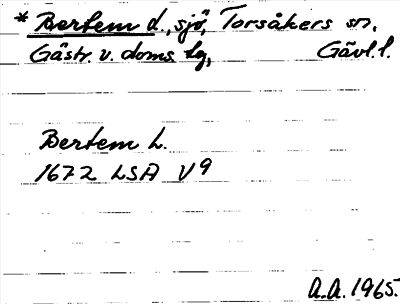 * Bertem d., sjö, Torsåkers sn,
Gästr. v. doms lg, Gävl. l.
Bertem L.
1672 LSA V 9
A.A. 1965.